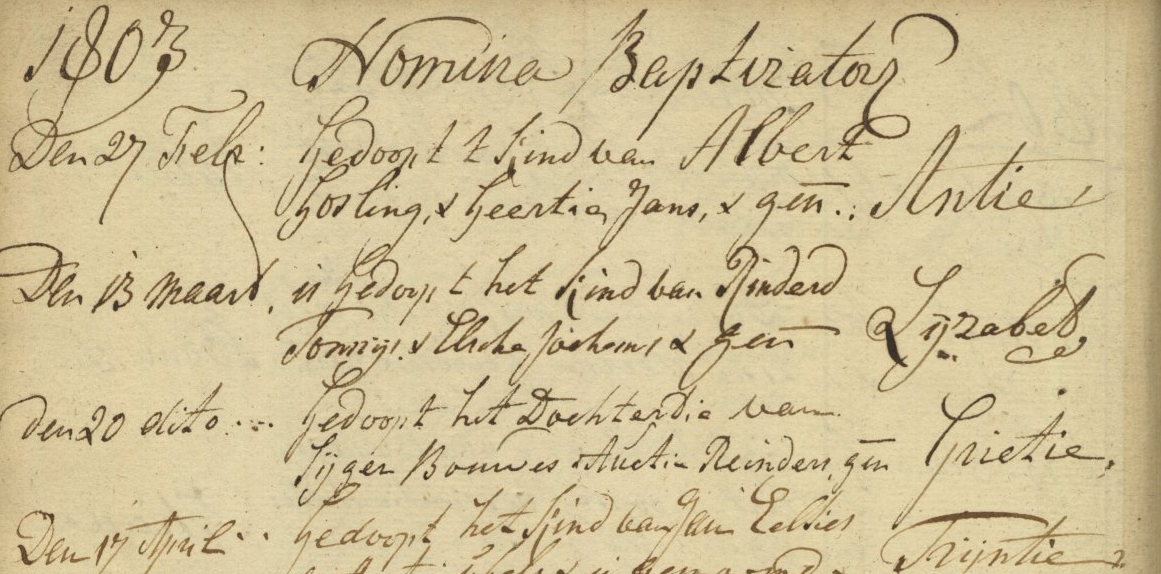 1803 Nomina Baptizator
Den 27 Feb: Gedoopt t kind van Albert
Gosling, & Geertie Jans, & gen̄.: Antie
Den 13 maart, is Gedoopt het kind van Rinderd
Tonnijs & Elsche Jochems & gen̄ Lijzabet
den 20 dito ... Gedoopt het Dochterdie van
Sijger Bouwes Reinders, gen̄ Grietie,
Den 17 April .. Gedoopt het kind van Jan Eelsies
Trijntie